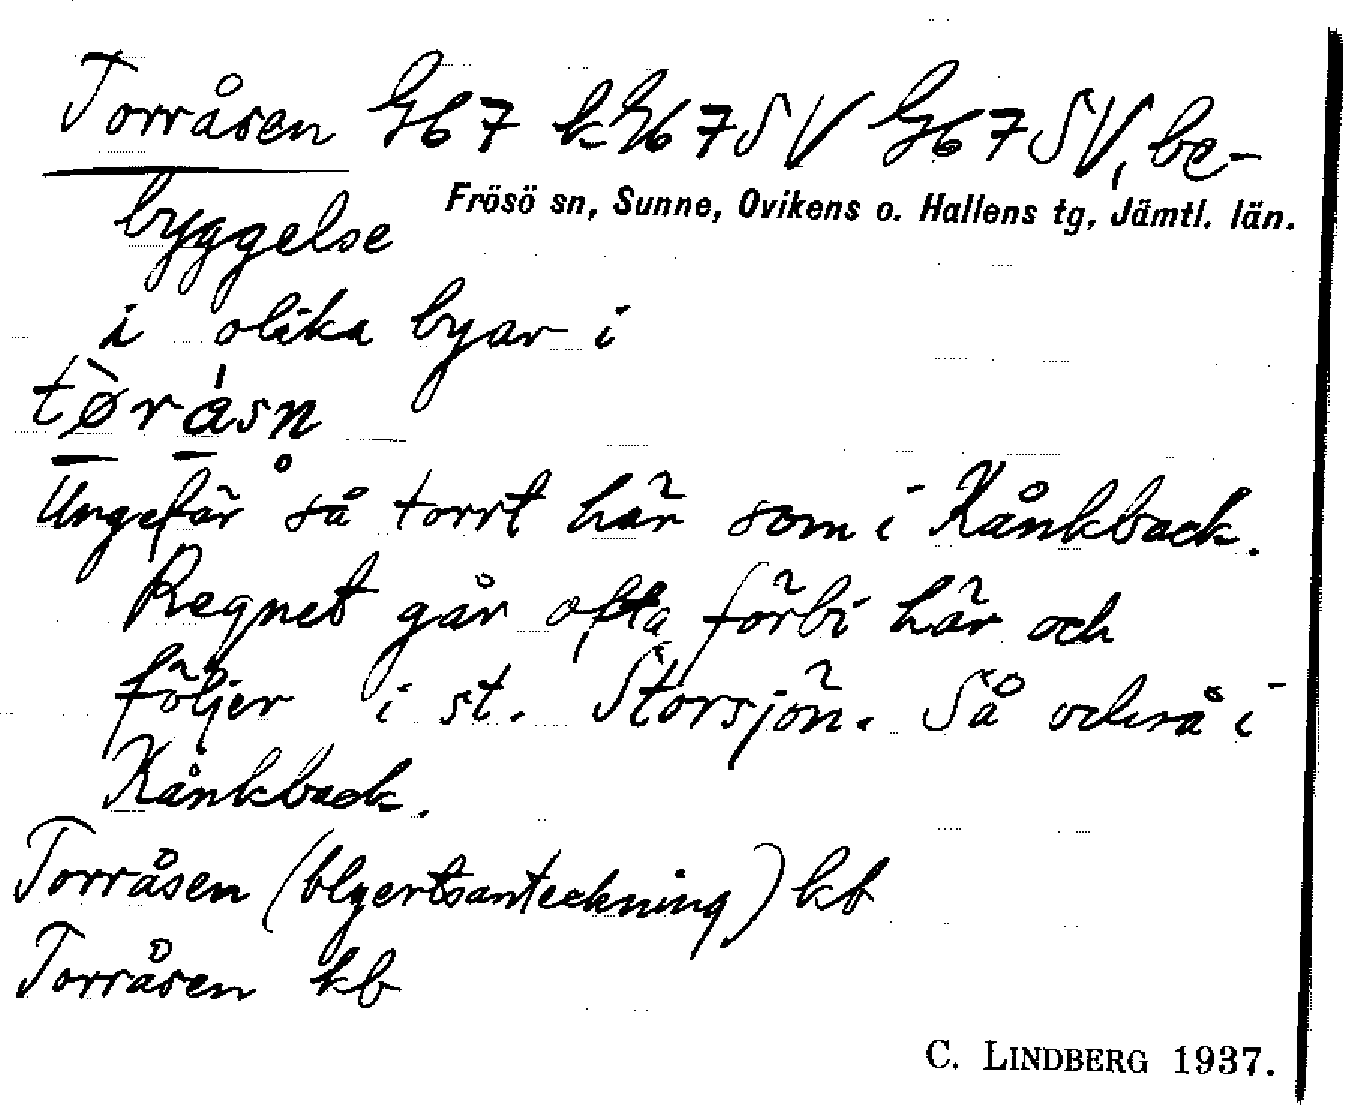 Torråsen G67 k G67SV G67SV, be-
Frösö sn, Sunne, Ovikens o. Hallens tg, Jämtl. län.
byggelse
i olika byar i
tø̀rásn̥
Ungefär så torrt här som i Kånkback.
Regnet går ofta förbi här och
följer i st. Storsjön. Så också i
Kånkback.
Torråsen (blyertsanteckning) kb
Torråsen kb
C. LINDBERG 1937.